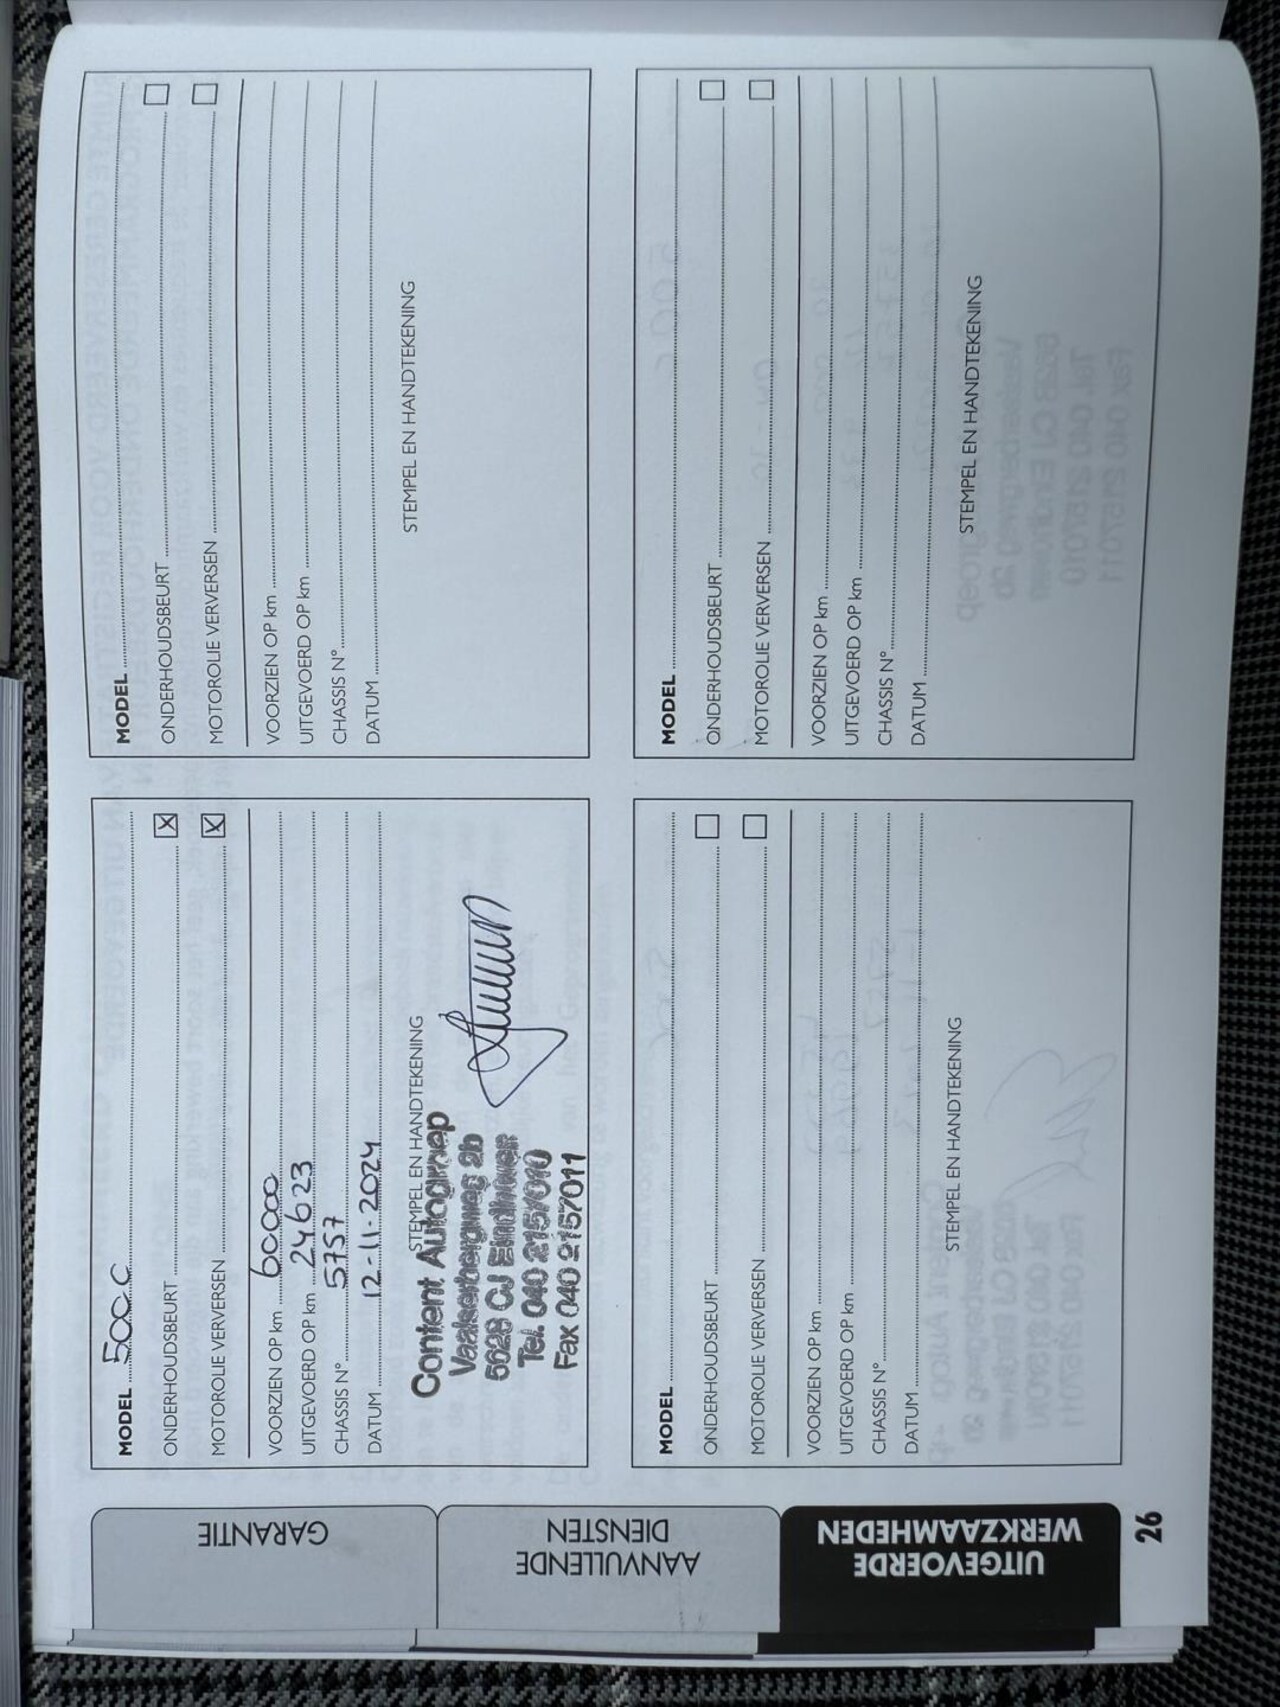 MODEL 500 C
ONDERHOUDSBEURT
MOTOROLIE VERVERSEN
VOORZIEN OP km 60000
UITGEVOERD OP km 24623
CHASSIS N° 5757
DATUM 12-11-2024
STEMPEL EN HANDTEKENING
Content Autogroep
Vaalserbergweg 2b
5628 CJ Eindhoven
Tel. 040 2157010
Fax 040 2157011
MODEL
ONDERHOUDSBEURT
MOTOROLIE VERVERSEN
VOORZIEN OP km
UITGEVOERD OP km
CHASSIS N°
DATUM
STEMPEL EN HANDTEKENING
MODEL
ONDERHOUDSBEURT
MOTOROLIE VERVERSEN
VOORZIEN OP km
UITGEVOERD OP km
CHASSIS N°
DATUM
STEMPEL EN HANDTEKENING
MODEL
ONDERHOUDSBEURT
MOTOROLIE VERVERSEN
VOORZIEN OP km
UITGEVOERD OP km
CHASSIS N°
DATUM
STEMPEL EN HANDTEKENING
GARANTIE
AANVULLENDE
DIENSTEN
UITGEVOERDE
WERKZAAMHEDEN
26